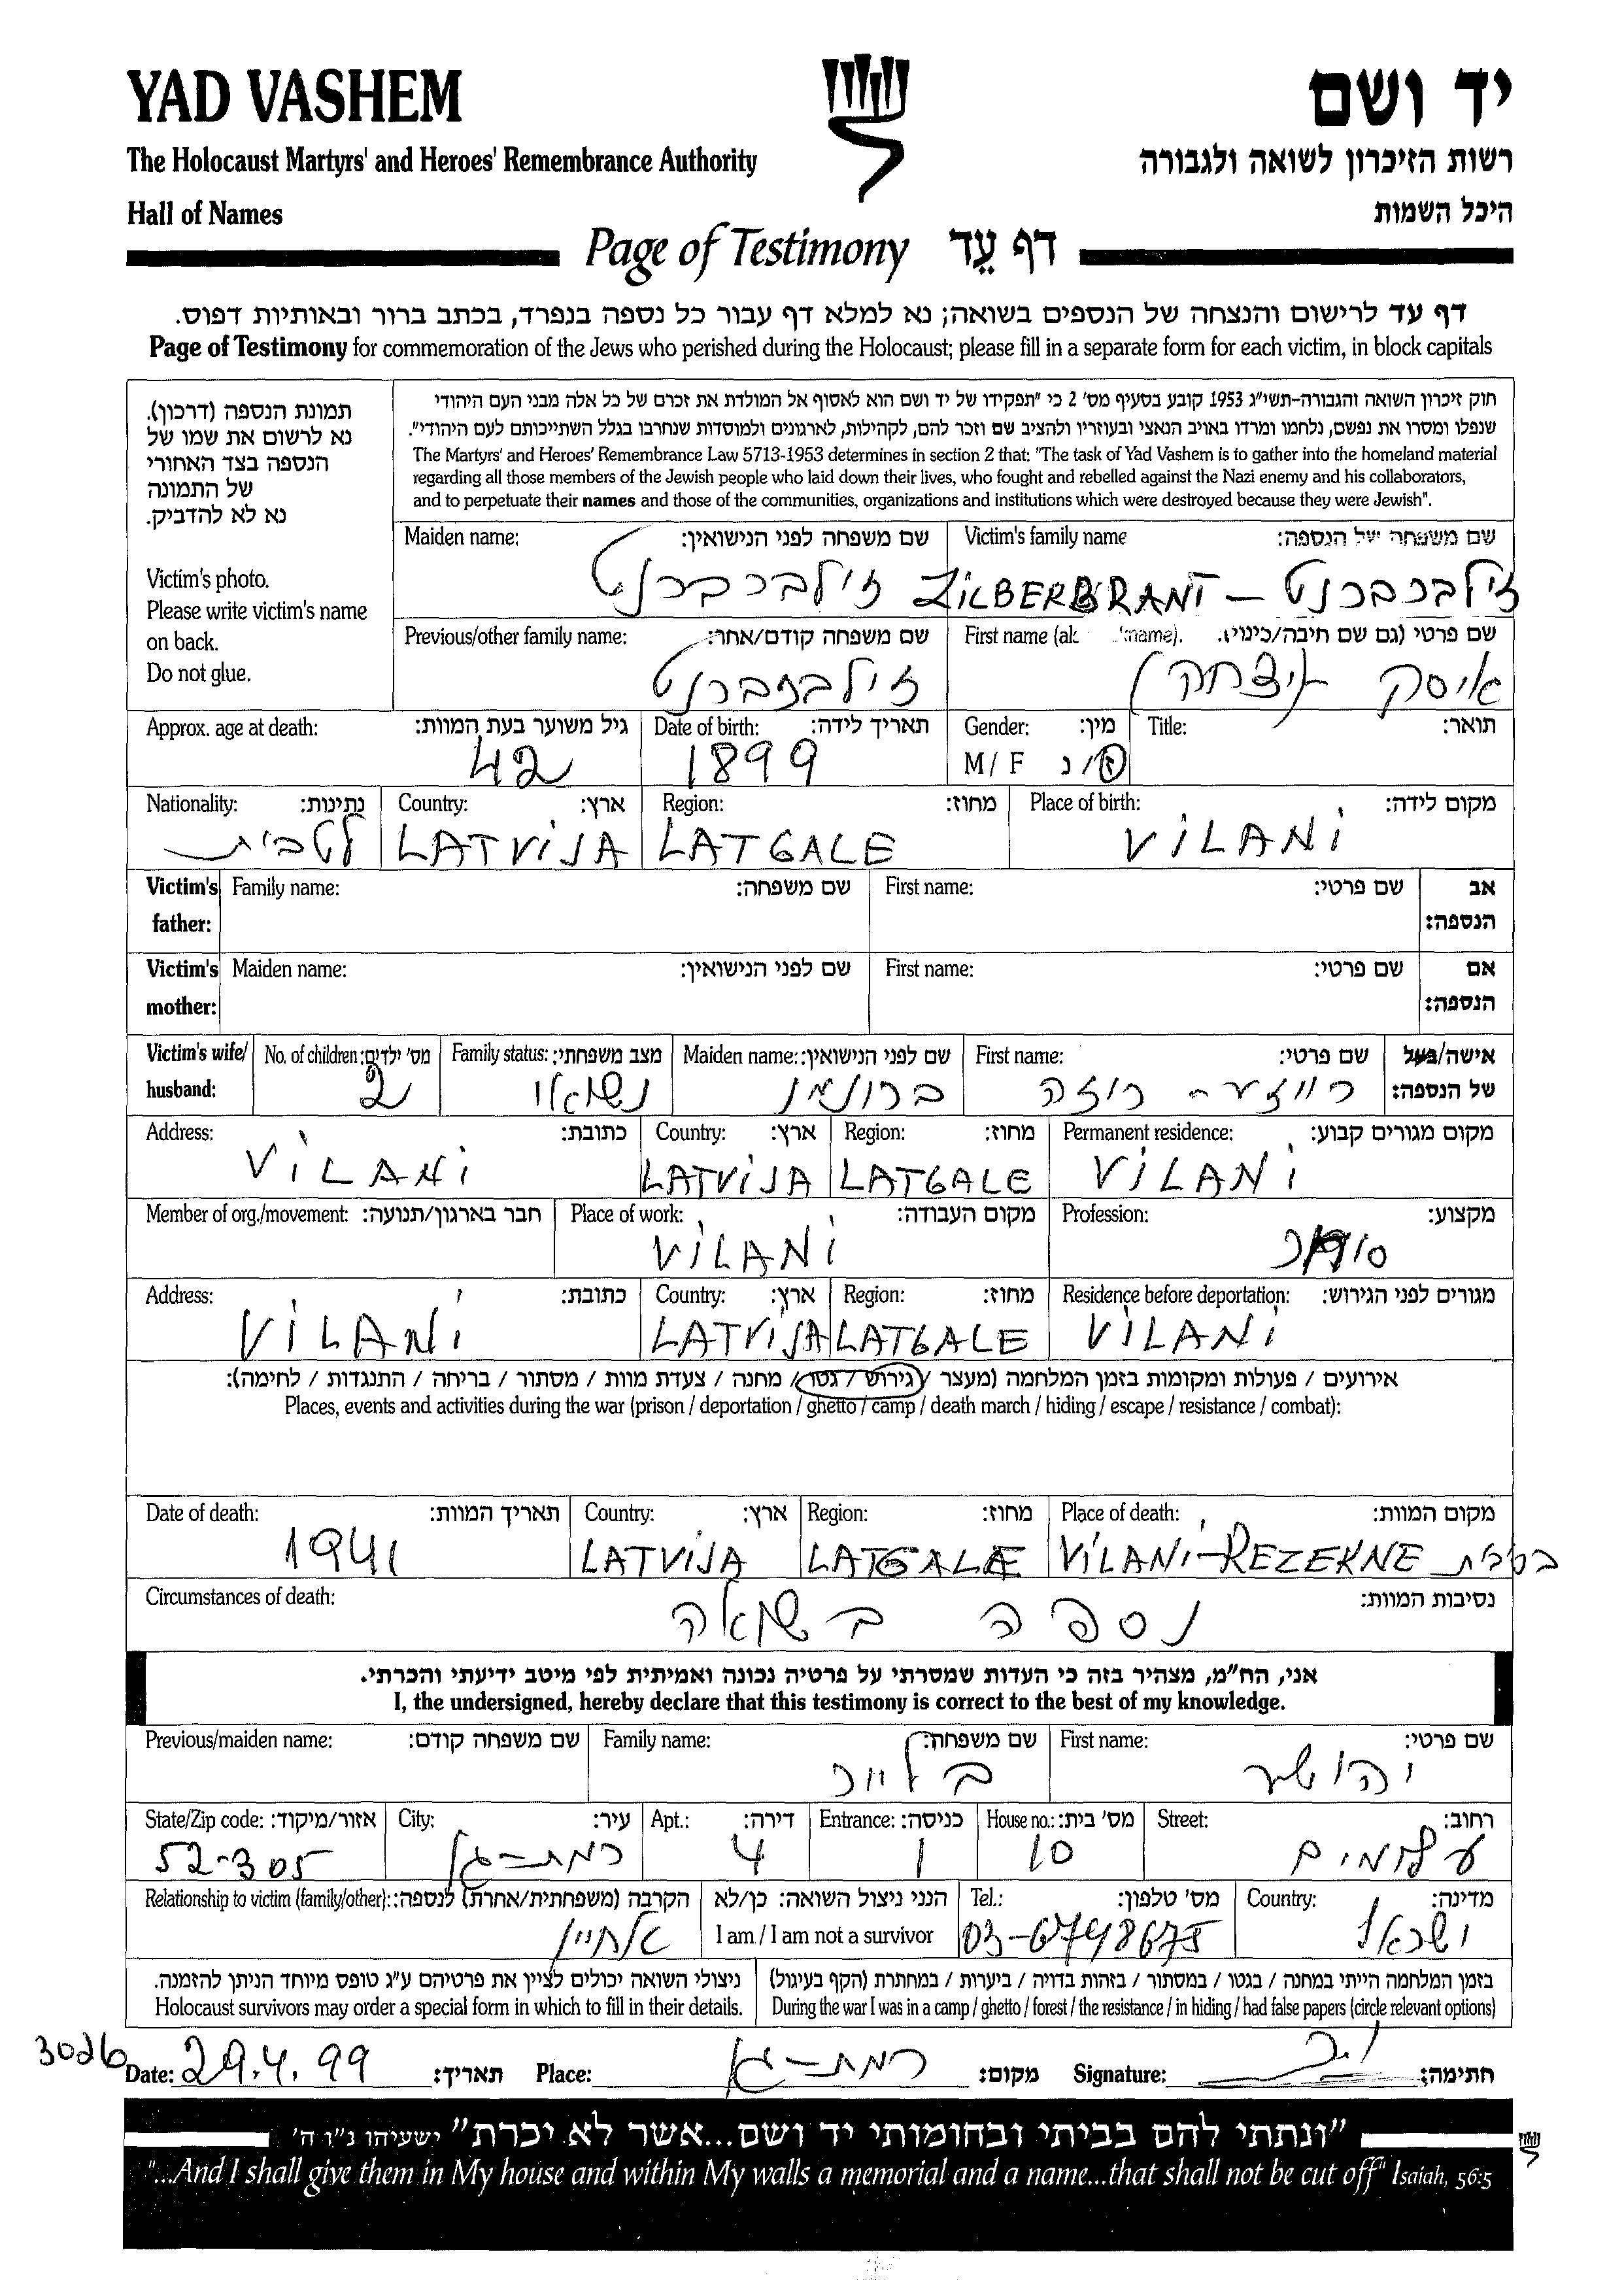 YAD VASHEM
יד ושם
The Holocaust Martyrs' and Heroes' Remembrance Authority
רשות הזיכרון לשואה ולגבורה
Hall of Names
היכל השמות
Page of Testimony דף עֵד
דף עד לרישום והנצחה של הנספים בשואה; נא למלא דף עבור כל נספה בנפרד, בכתב ברור ובאותיות דפוס.
Page of Testimony for commemoration of the Jews who perished during the Holocaust; please fill in a separate form for each victim, in block capitals
תמונת הנספה (דרכון).
נא לרשום את שמו של
הנספה בצד האחורי
של התמונה
נא לא להדביק.
Victim's photo.
Please write victim's name
on back.
Do not glue.
חוק זיכרון השואה והגבורה-תשי"ג 1953 קובע בסעיף מס' 2 כי "תפקידו של יד ושם הוא לאסוף אל המולדת את זכרם של כל אלה מבני העם היהודי
שנפלו ומסרו את נפשם, נלחמו ומרדו באויב הנאצי ובעוזריו ולהציב שם וזכר להם, לקהילות, לארגונים ולמוסדות שנחרבו בגלל השתייכותם לעם היהודי".
The Martyrs' and Heroes' Remembrance Law 5713-1953 determines in section 2 that: "The task of Yad Vashem is to gather into the homeland material
regarding all those members of the Jewish people who laid down their lives, who fought and rebelled against the Nazi enemy and his collaborators,
and to perpetuate their names and those of the communities, organizations and institutions which were destroyed because they were Jewish".
Maiden name: שם משפחה לפני הנישואין: Victim's family name שם משפחה של הנספה:
זילברברנט ZILBERBRANT – זילברברנט
Previous/other family name: שם משפחה קודם/אחר: First name (al name). שם פרטי (גם שם חיבה/כינוי).
זילבזברנט איסק (יצחק)
Approx. age at death: גיל משוער בעת המוות: Date of birth: תאריך לידה: Gender: מין: Title: תואר:
42 1899 M / F ז/נ
Nationality: נתינות: Country: ארץ: Region: מחוז: Place of birth: מקום לידה:
לטבית LATVIJA LATGALE VILANI
Victim's father: Family name: שם משפחה: First name: שם פרטי: אב הנספה:
Victim's mother: Maiden name: שם לפני הנישואין: First name: שם פרטי: אם הנספה:
Victim's wife/ husband: No. of children: מס' ילדים: Family status: מצב משפחתי: Maiden name: שם לפני הנישואין: First name: שם פרטי: אישה/בעל של הנספה:
2 נשוי ברוימן רייזע - רוזה
Address: כתובת: Country: ארץ: Region: מחוז: Permanent residence: מקום מגורים קבוע:
VILANI LATVIJA LATGALE VILANI
Member of org./movement: חבר בארגון/תנועה: Place of work: מקום העבודה: Profession: מקצוע:
VILANI סוחר
Address: כתובת: Country: ארץ: Region: מחוז: Residence before deportation: מגורים לפני הגירוש:
VILANI LATVIJA LATGALE VILANI
אירועים / פעולות ומקומות בזמן המלחמה (מעצר / גירוש / גטו / מחנה / צעדת מוות / מסתור / בריחה / התנגדות / לחימה):
Places, events and activities during the war (prison / deportation / ghetto / camp / death march / hiding / escape / resistance / combat):
Date of death: תאריך המוות: Country: ארץ: Region: מחוז: Place of death: מקום המוות:
1941 LATVIJA LATGALE VILANI-REZEKNE
Circumstances of death: נסיבות המוות:
נספה בשואה
אני, הח"מ, מצהיר בזה כי העדות שמסרתי על פרטיה נכונה ואמיתית לפי מיטב ידיעתי והכרתי.
I, the undersigned, hereby declare that this testimony is correct to the best of my knowledge.
Previous/maiden name: שם משפחה קודם: Family name: שם משפחה: First name: שם פרטי:
בלייר יהושע
State/Zip code: אזור/מיקוד: City: עיר: Apt.: דירה: Entrance: כניסה: House no.: מס' בית: Street: רחוב:
52-305 רמת-גן 4 1 10 עלומים
Relationship to victim (family/other): הקרבה (משפחתית/אחרת) לנספה: הנני ניצול השואה: כן/לא Tel.: מס' טלפון: Country: מדינה:
אחיין I am / I am not a survivor 03-6748675 ישראל
ניצולי השואה יכולים לציין את פרטיהם ע"ג טופס מיוחד הניתן להזמנה.
Holocaust survivors may order a special form in which to fill in their details.
בזמן המלחמה הייתי במחנה / בגטו / במסתור / בזהות בדויה / ביערות / במחתרת (הקף בעיגול)
During the war I was in a camp / ghetto / forest / the resistance / in hiding / had false papers (circle relevant options)
3026
Date: 29.4.99 תאריך: Place: רמת-גן מקום: Signature: חתימה:
"ונתתי להם בביתי ובחומותי יד ושם...אשר לא יכרת" ישעיהו נ"ו ה'
"...And I shall give them in My house and within My walls a memorial and a name...that shall not be cut off" Isaiah, 56:5